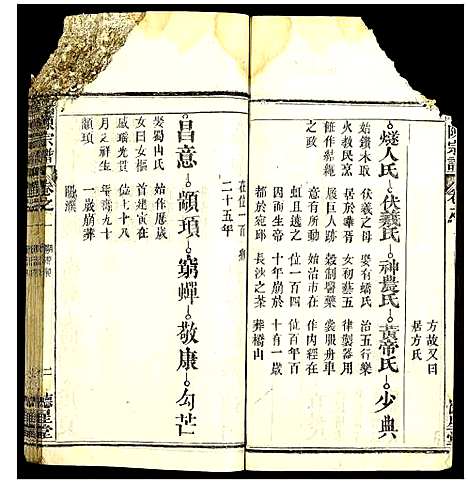 方故又曰
居方氏
燧人氏 伏羲氏 神農氏 黃帝氏 少典
始鑽木取
火教民烹
飪作結繩
之政
伏羲之母
居於華胥
履巨人跡
意有所動
虹且遶之
因而生帝
於成紀
娶有蟜氏
女初藝五
穀制醫藥
始治市在
位一百四
十年崩於
長沙之茶
治五行樂
律製器用
裳服舟車
作内經在
位百年百
十有一歲
葬橋山
在位一百
二十五年
昌意 顓頊 窮蟬 敬康 勾芒
娶蜀山氏
女曰女樞
感瑤光貫
月之祥生
顓頊
始作曆成
首建寅在
位七十八
年壽九十
一歲崩葬
濮
陳宗譜
卷之
二
德星堂